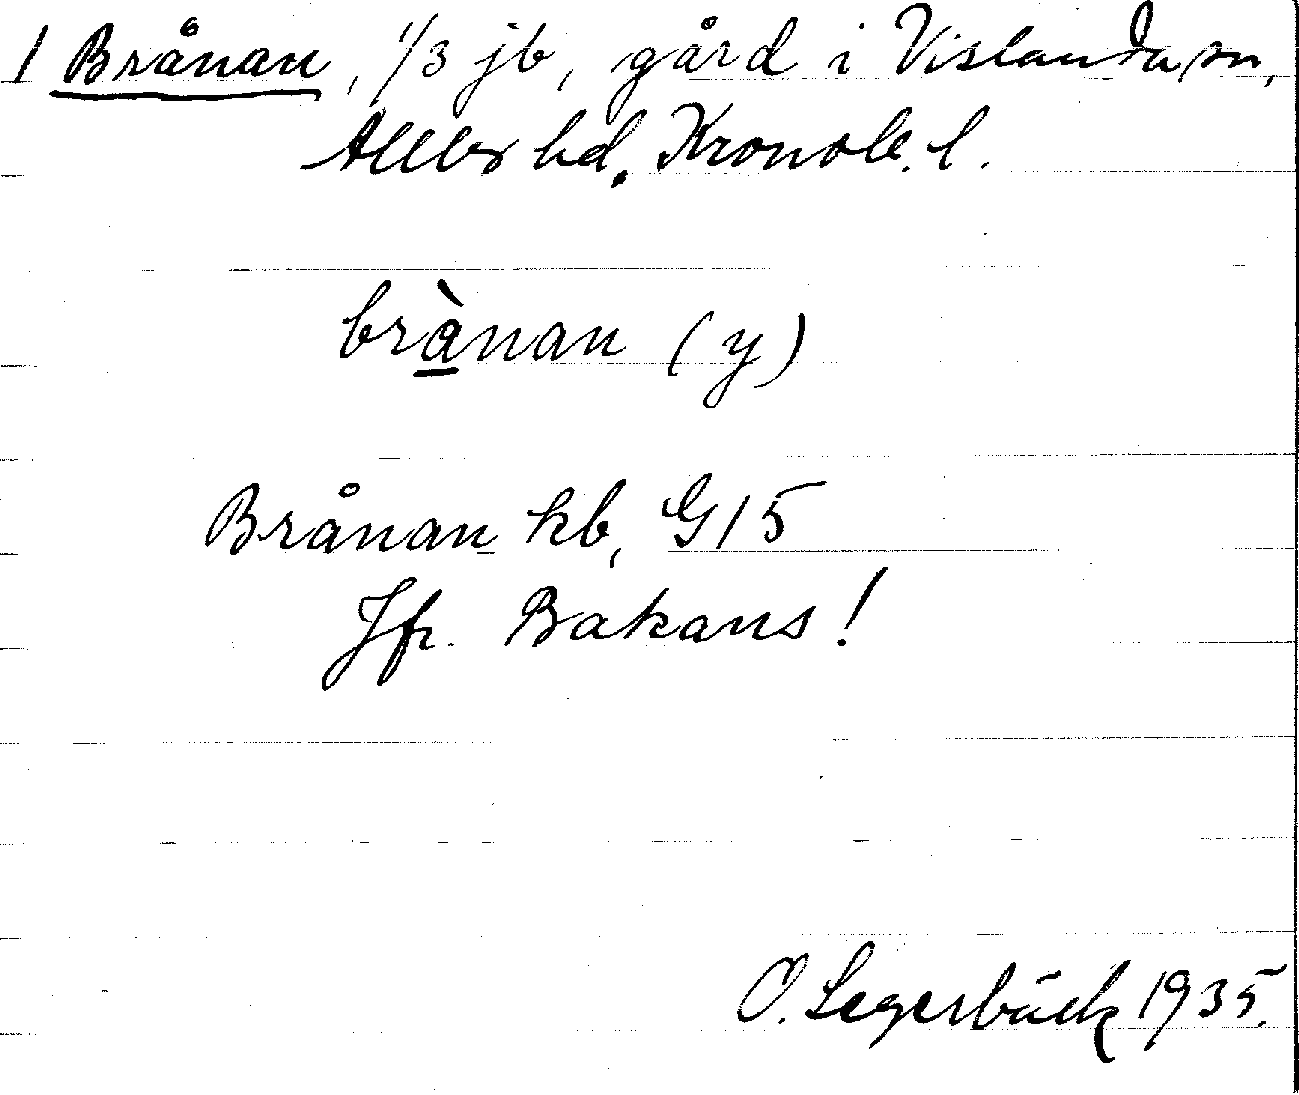 1 Brånan, 1/3 jb, gård i Vislanda sn,
Allbo hd. Kronob. l.
brànan (y)
Brånan kb, G15
Jfr. Bakans!
O. Segerbäck 1935.